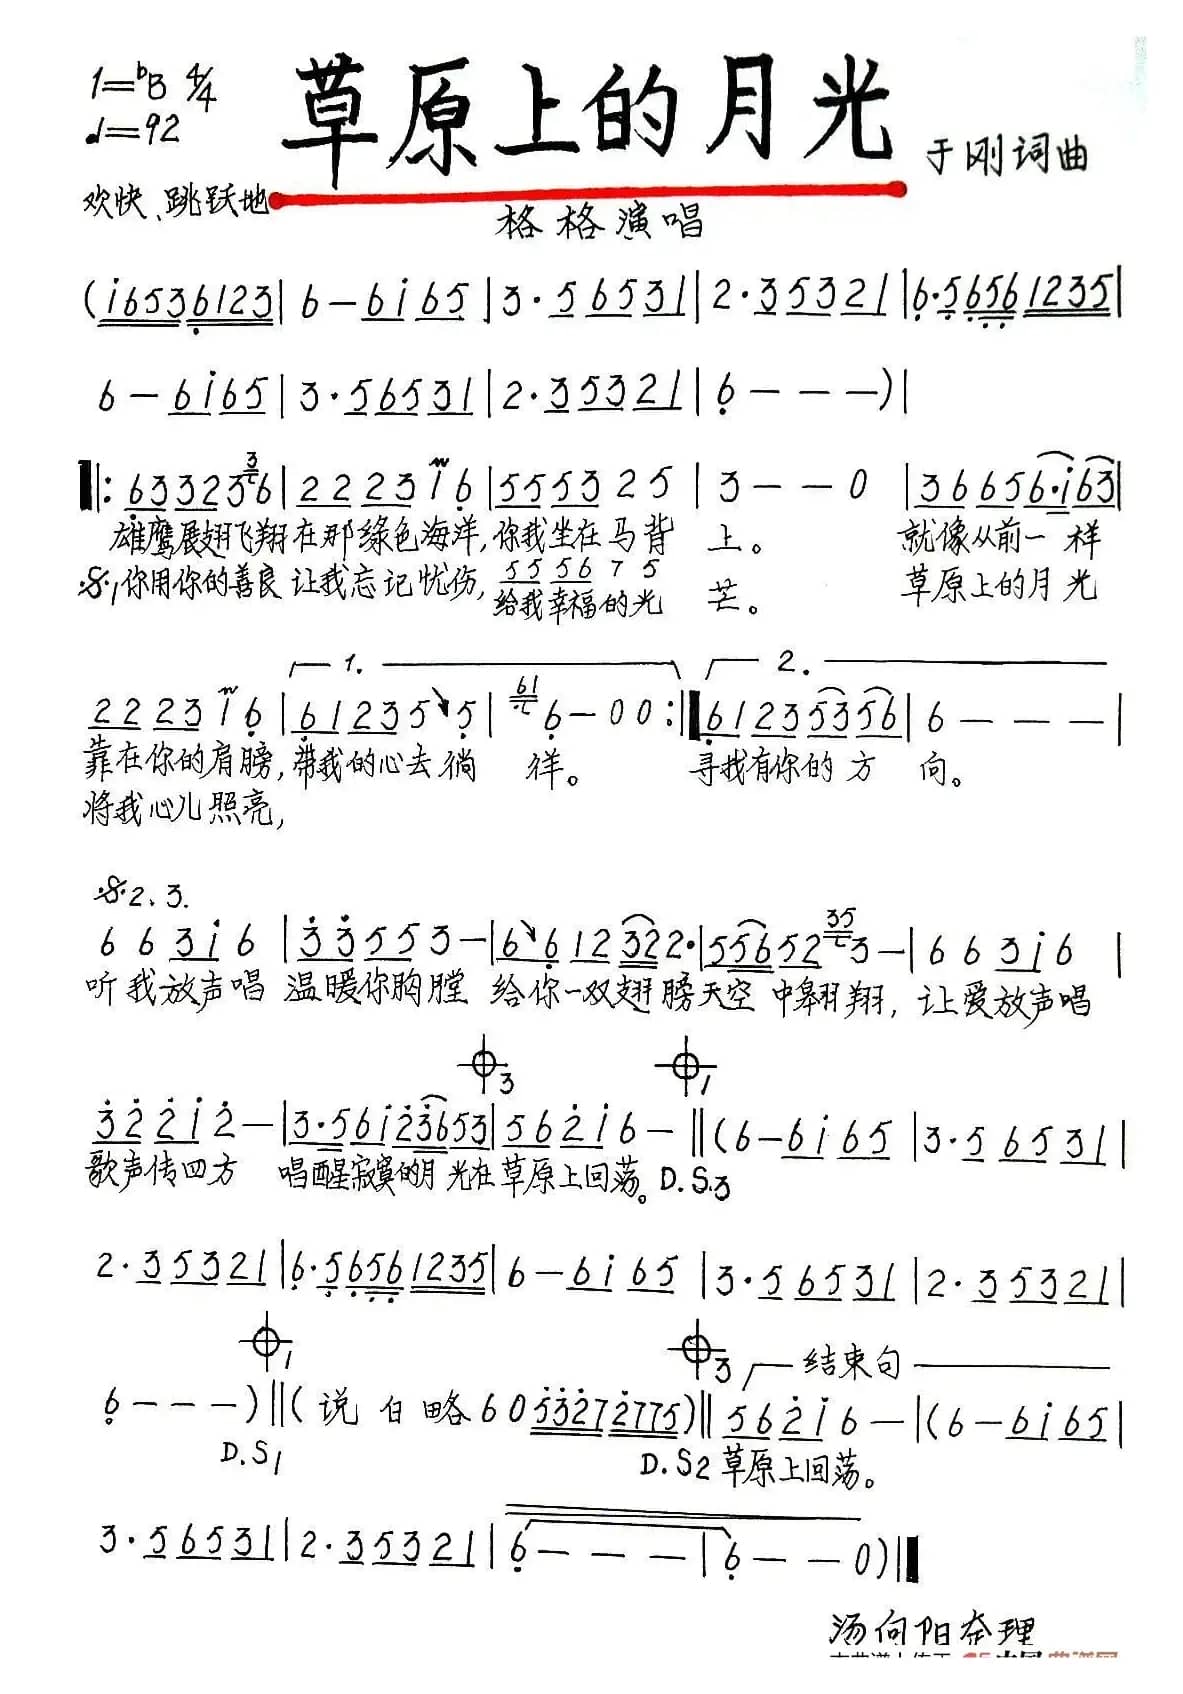 1=♭B 4/4
♩=92
草原上的月光
于刚词曲
欢快、跳跃地
格格演唱
(i6536123|6-6i65|3·56531|2·35321|6·56561235|
6-6i65|3·56531|2·35321|6---)|
‖:63323 3 6|22231̇6|555325|3--0|36656·i63|
雄鹰展翅飞翔在那绿色海洋,你我坐在马背上。就像从前一样
𝄋1你用你的善良让我忘记忧伤, 555675
给我幸福的光芒。草原上的月光
1. 2.
2223i6|612355|61 6-00:‖61235356|6---|
靠在你的肩膀,带我的心去徜徉。寻我有你的方向。
将我心儿照亮,
𝄋2、3.
663i6|33553-|6612322·|55652 35 3-|663i6|
听我放声唱温暖你胸膛给你一双翅膀天空中翱翔,让爱放声唱
𝄌3 𝄌1
322i2-|3·56i23653|562i6-‖(6-6i65|3·56531|
歌声传四方唱醒寂寞的月光在草原上回荡。D.S.3
2·35321|6·56561235|6-6i65|3·56531|2·35321|
𝄌1 𝄌3 结束句
6---)‖(说白略6053272775)‖562i6-|(6-6i65|
D.S1 D.S2草原上回荡。
3·56531|2·35321|6---|6--0)‖
汤向阳奉理